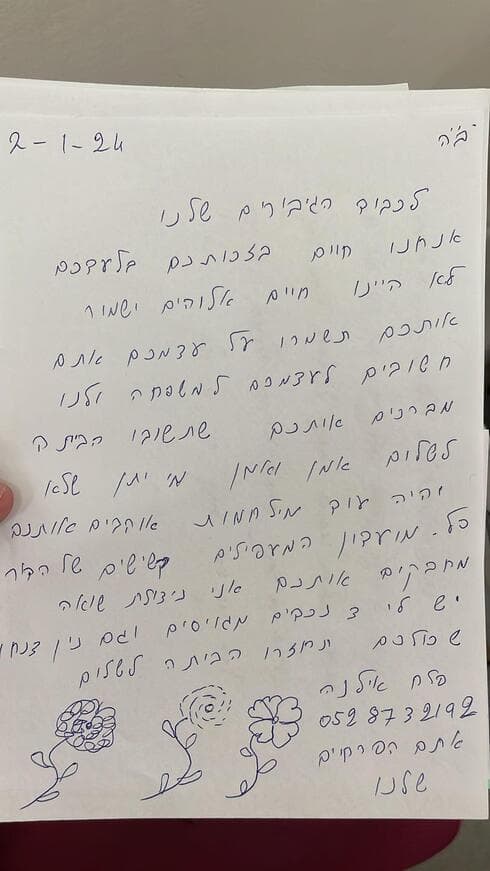 ב״ה
2-1-24
לכבוד הגיבורים שלנו
אנחנו חיים בזכותכם בלעדכם
לא היינו חיים אלוהים ישמור
אותכם תשמרו על עצמכם אתם
חשובים לעצמכם למשפחה ולנו
מברכים אותכם שתשובו הביתה
לשלום אמן ואמן מי יתן שלא
יהיה עוד מילחמות אוהבים אותכם
כל מועדון המעפילים קשישים של
מחבקים אותכם אני ניצולת שואה
יש לי 3 נכדים מגוייסים וגם נין
שכולכם תחזרו הביתה לשלום
פלח אילנה
052 8732192
אתם הפרחים
שלנו